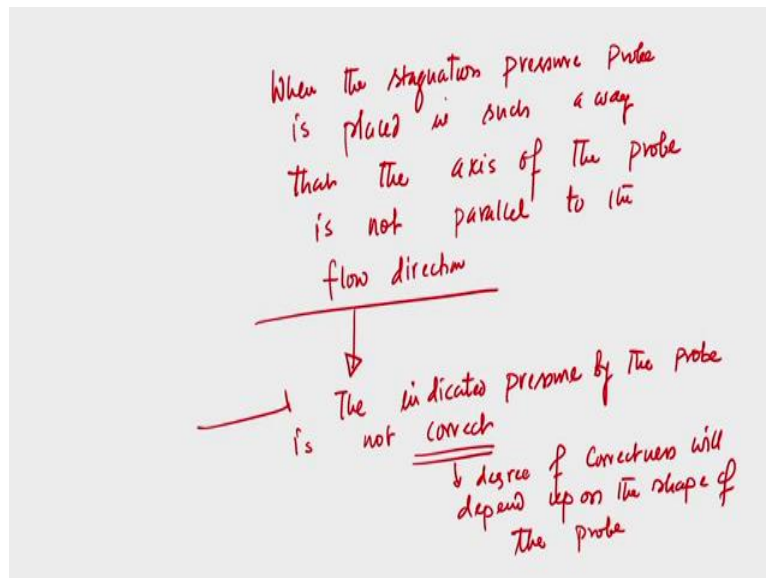 When the stagnation pressure probe
is placed in such a way
that the axis of the probe
is not parallel to the
flow direction
The indicated pressure by the probe
is not correct
degree of correctness will
depend up on the shape of
the probe